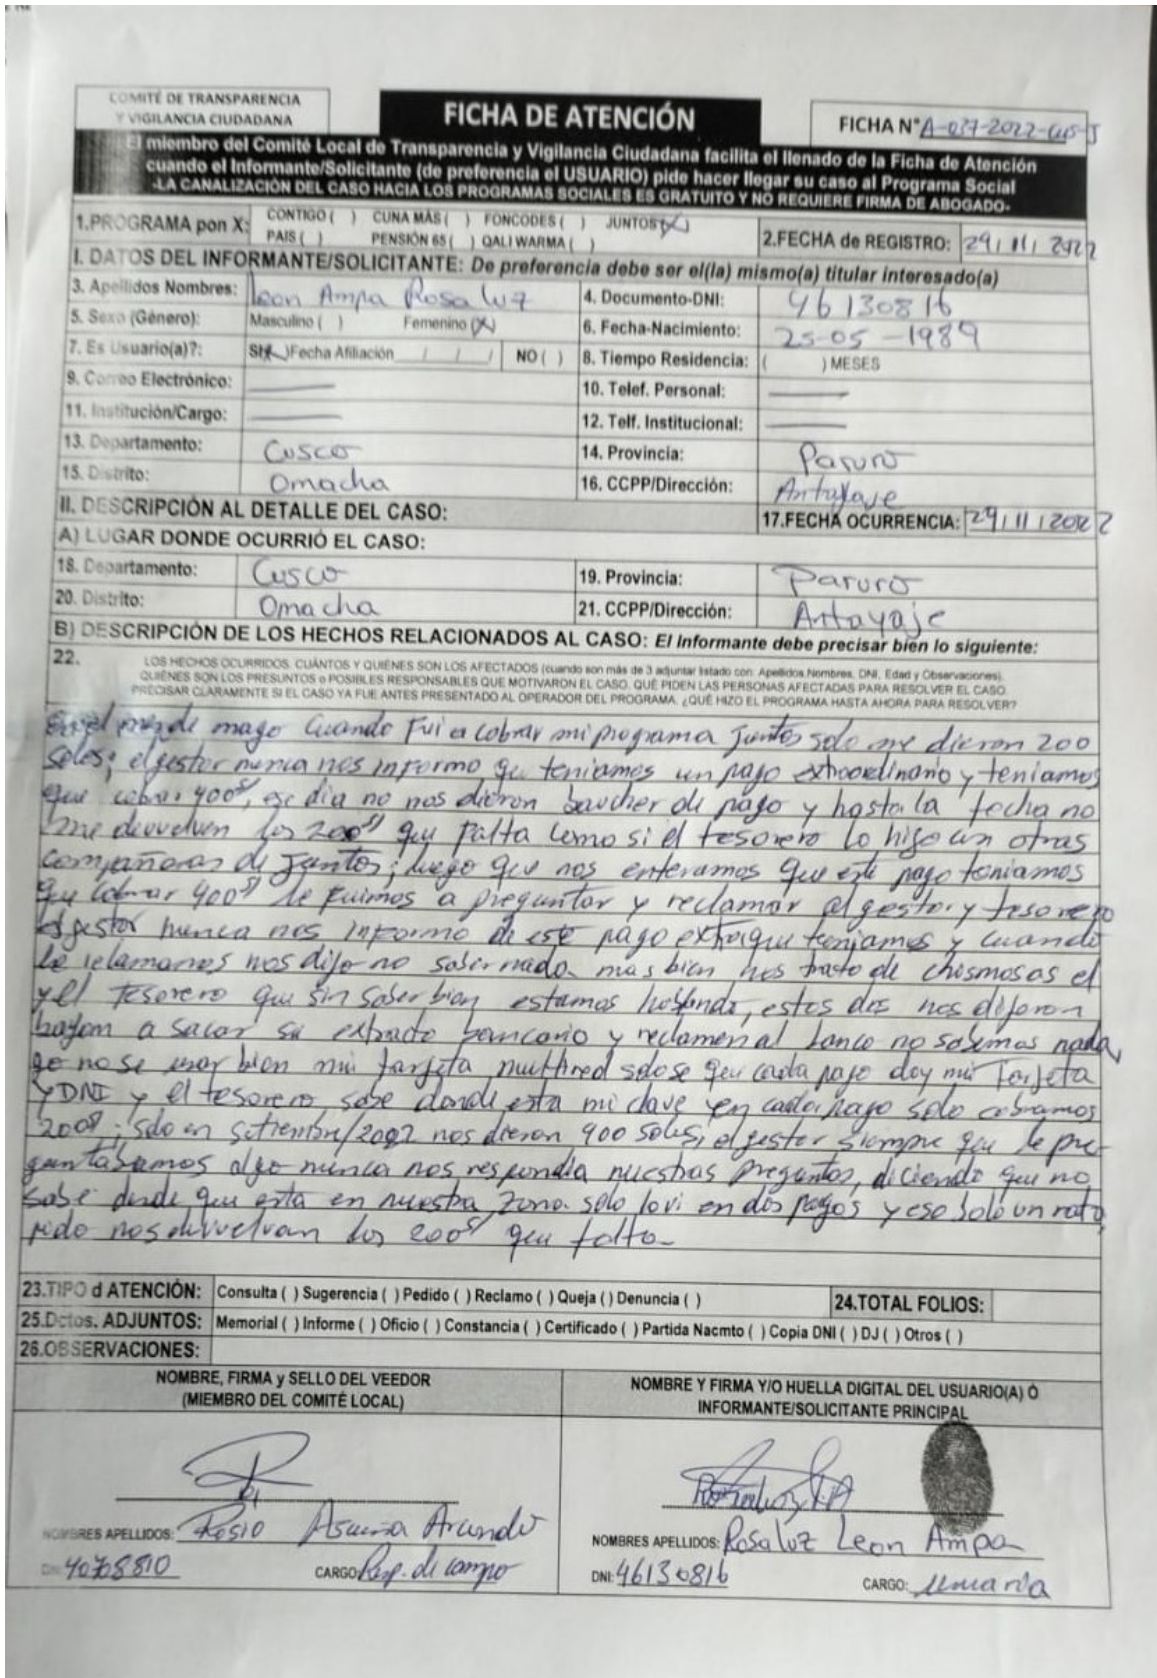 COMITÉ DE TRANSPARENCIA
Y VIGILANCIA CIUDADANA
FICHA DE ATENCIÓN
FICHA N° A-037-2022-CUS-J
El miembro del Comité Local de Transparencia y Vigilancia Ciudadana facilita el llenado de la Ficha de Atención
cuando el Informante/Solicitante (de preferencia el USUARIO) pide hacer llegar su caso al Programa Social
-LA CANALIZACIÓN DEL CASO HACIA LOS PROGRAMAS SOCIALES ES GRATUITO Y NO REQUIERE FIRMA DE ABOGADO-
1.PROGRAMA pon X: CONTIGO ( ) CUNA MÁS ( ) FONCODES ( ) JUNTOS (X)
PAIS ( ) PENSIÓN 65 ( ) QALI WARMA ( )
2.FECHA de REGISTRO: 29/11/2022
I. DATOS DEL INFORMANTE/SOLICITANTE: De preferencia debe ser el(la) mismo(a) titular interesado(a)
3. Apellidos Nombres: Leon Ampa Rosa luz 4. Documento-DNI: 46130816
5. Sexo (Género): Masculino ( ) Femenino (X) 6. Fecha-Nacimiento: 25-05-1989
7. Es Usuario(a)?: SI(X) Fecha Afiliación / / / NO ( ) 8. Tiempo Residencia: ( ) MESES
9. Correo Electrónico: 10. Telef. Personal:
11. Institución/Cargo: 12. Telf. Institucional:
13. Departamento: Cusco 14. Provincia: Paruro
15. Distrito: Omacha 16. CCPP/Dirección: Antayaje
II. DESCRIPCIÓN AL DETALLE DEL CASO: 17.FECHA OCURRENCIA: 29/11/2022
A) LUGAR DONDE OCURRIÓ EL CASO:
18. Departamento: Cusco 19. Provincia: Paruro
20. Distrito: Omacha 21. CCPP/Dirección: Antayaje
B) DESCRIPCIÓN DE LOS HECHOS RELACIONADOS AL CASO: El Informante debe precisar bien lo siguiente:
22. LOS HECHOS OCURRIDOS. CUÁNTOS Y QUIÉNES SON LOS AFECTADOS (cuando son más de 3 adjuntar listado con: Apellidos Nombres, DNI, Edad y Observaciones).
QUIÉNES SON LOS PRESUNTOS o POSIBLES RESPONSABLES QUE MOTIVARON EL CASO. QUÉ PIDEN LAS PERSONAS AFECTADAS PARA RESOLVER EL CASO.
PRECISAR CLARAMENTE SI EL CASO YA FUE ANTES PRESENTADO AL OPERADOR DEL PROGRAMA. ¿QUÉ HIZO EL PROGRAMA HASTA AHORA PARA RESOLVER?
En el mes de mayo Cuando Fui a cobrar mi programa Juntos solo me dieron 200
soles; el gestor nunca nos informo que teniamos un pago extraordinario y teniamos
que cobrar 400 s/, ese dia no nos dieron baucher de pago y hasta la fecha no
me devuelven los 200 s/ que falta como si el tesorero lo hizo con otras
compañeras de Juntos; luego que nos enteramos que este pago teniamos
que cobrar 400 s/ le fuimos a preguntar y reclamar al gestor y tesorero
el gestor nunca nos informo de ese pago extra que teniamos y cuando
le reclamamos nos dijo no saber nada mas bien nos trato de chismosas el
y el tesorero que sin saber bien estamos hablando, estos dos nos dijeron
bayam a sacar su extracto bancario y reclamen al banco no sabemos nada,
yo no se usar bien mi tarjeta multired solo se que cada pago doy mi Tarjeta
y DNI y el tesorero sabe donde esta mi clave y en cada pago solo cobramos
200 s/; solo en setiembre/2022 nos dieron 400 soles; el gestor siempre que le pre-
guntabamos algo nunca nos respondia nuestras preguntas, diciendo que no
sabe desde que esta en nuestra zona solo lo vi en dos pagos y eso solo un rato,
pido nos devuelvan los 200 s/ que falta-
23.TIPO d ATENCIÓN: Consulta ( ) Sugerencia ( ) Pedido ( ) Reclamo ( ) Queja ( ) Denuncia ( ) 24.TOTAL FOLIOS:
25.Dctos. ADJUNTOS: Memorial ( ) Informe ( ) Oficio ( ) Constancia ( ) Certificado ( ) Partida Nacmto ( ) Copia DNI ( ) DJ ( ) Otros ( )
26.OBSERVACIONES:
NOMBRE, FIRMA y SELLO DEL VEEDOR
(MIEMBRO DEL COMITÉ LOCAL)
NOMBRE Y FIRMA Y/O HUELLA DIGITAL DEL USUARIO(A) Ó
INFORMANTE/SOLICITANTE PRINCIPAL
NOMBRES APELLIDOS: Rosio
DNI: 40768810 CARGO: Resp. de campo
NOMBRES APELLIDOS: Rosa luz Leon Ampa
DNI: 46130816 CARGO: usuaria